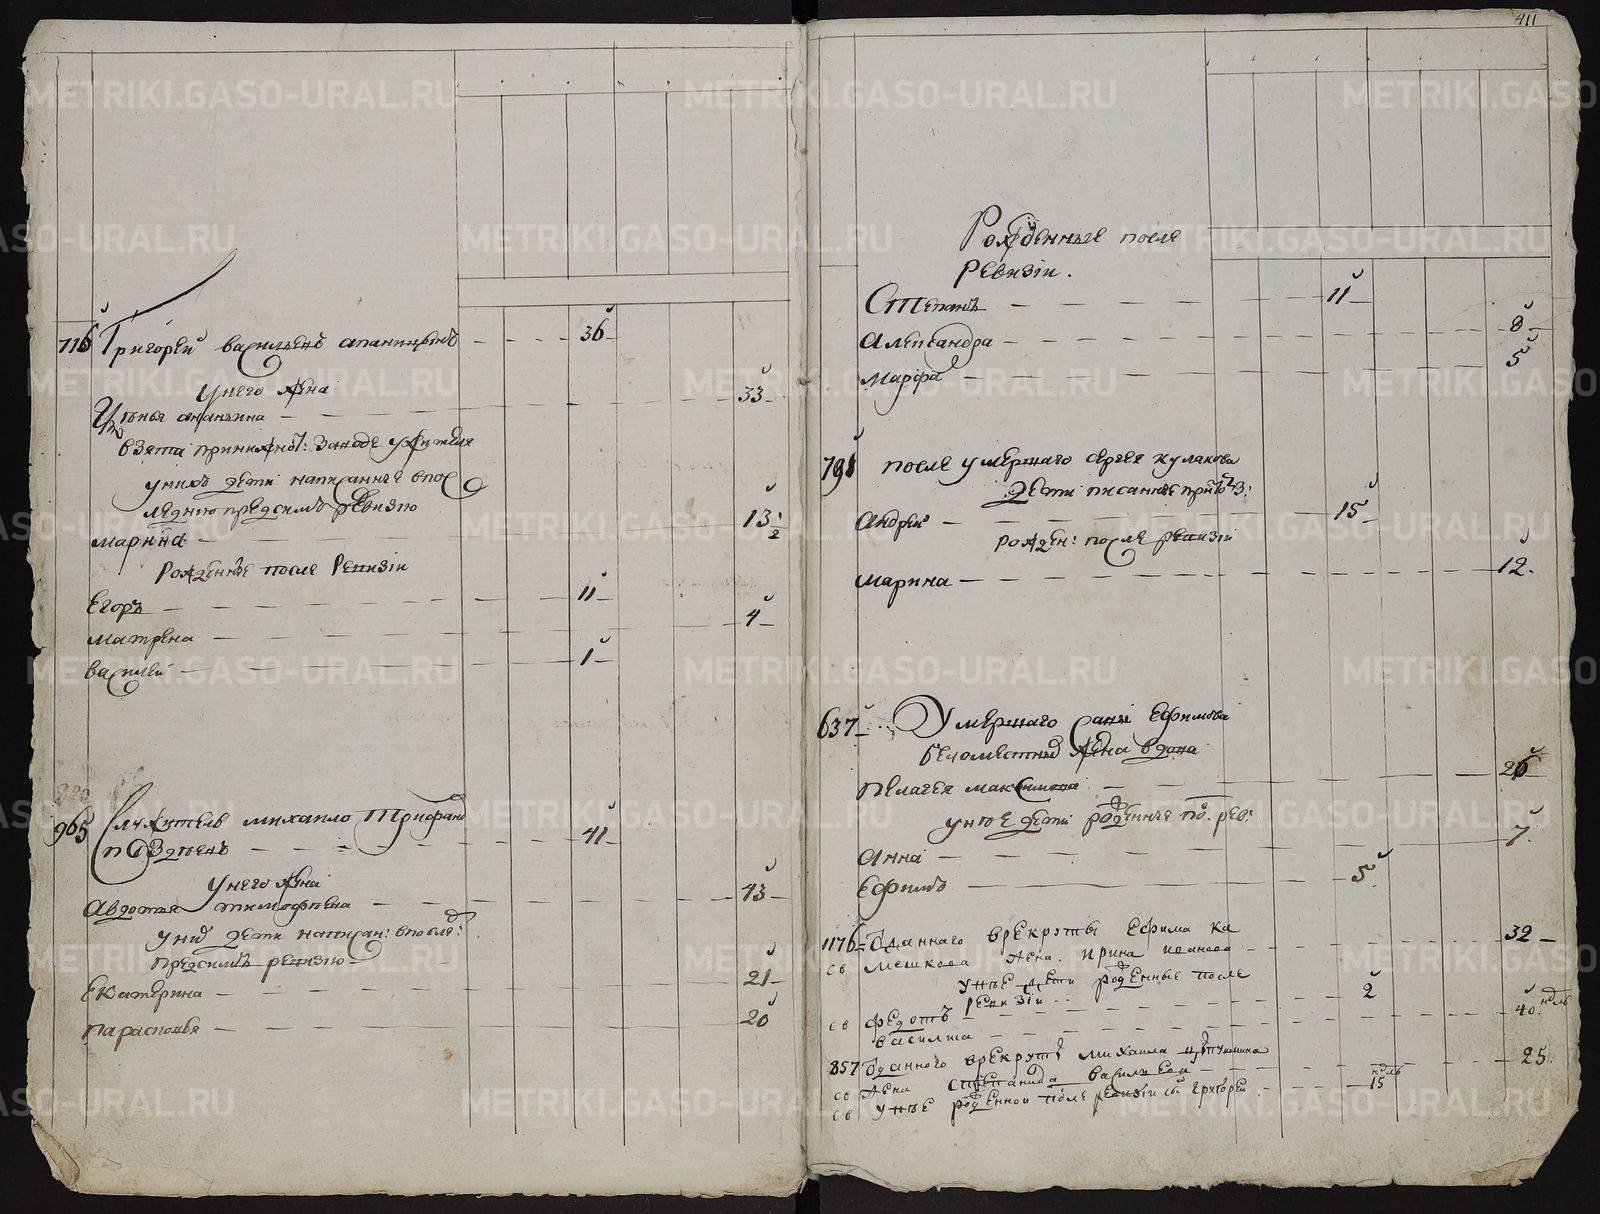 716 Григорей васильевъ 36
Унего жена
33
взята
унихъ дети написанные впос
леднюю предсимъ ревизию
марина 13 1/2
Рожденные после Ревизiи
Егоръ 11
матрена 4
василей 1
965 Служитель михаило Трифанов
41
Унего жена
авдотья тимофеевна 43
уних дети написан: впослед:
предсимъ ревизию
Екатерина 21
парасковья 20
411
Рожденные после
ревизiи.
Степанъ 11
александра 8
марфа 5
791 после умершаго сергея кулакова
дети писанные при
андрей 15
рожден: после ревизiи
марина 12.
637 Умершаго Ефимова
жена вдова
пелагея максимова 26
унее дети рожденные по. рев:
анна 7.
Ефимъ 5
1176 Отданнаго врекруты Ефима Ка
св мешкова жена ирина иванова 32
унее дети рожденные после
ревизiи
св федотъ 2
василиса 40. ндль
857 Отданного врекруты михаила
св жена степанида васильева 25
св унее рожденной после ревизiи сын григорей 15 ндль